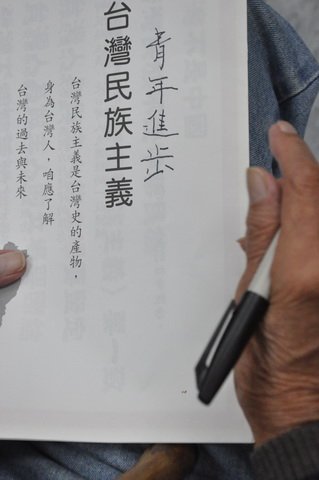 青年進步
台灣民族主義
台灣民族主義是台灣史的產物，
身為台灣人，咱應了解
台灣的過去與未來